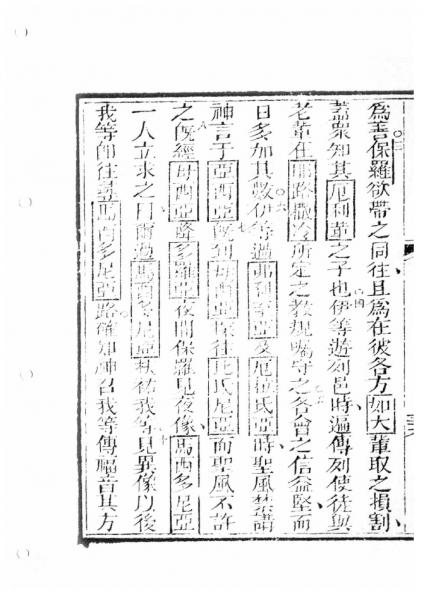 為善保羅欲帶之同往且為在彼各方如大輩取之損割
蓋眾知其厄利輩之子也伊等遊列邑時遍傳列使徒與
老輩在耶路撒冷所定之教規囑守之各會之信益堅而
日多加其數伊等過弗利亞及厄拉氏亞時聖風禁講
神言于亞西亞既到每西亞探往比氏尼亞而聖風不許
之既經每西亞多羅亞夜間保羅見夜像馬西多尼亞
一人立求之曰爾過馬西多尼亞扶祐我等見異像以後
我等即往馬西多尼亞路確知神召我等傳福音其方